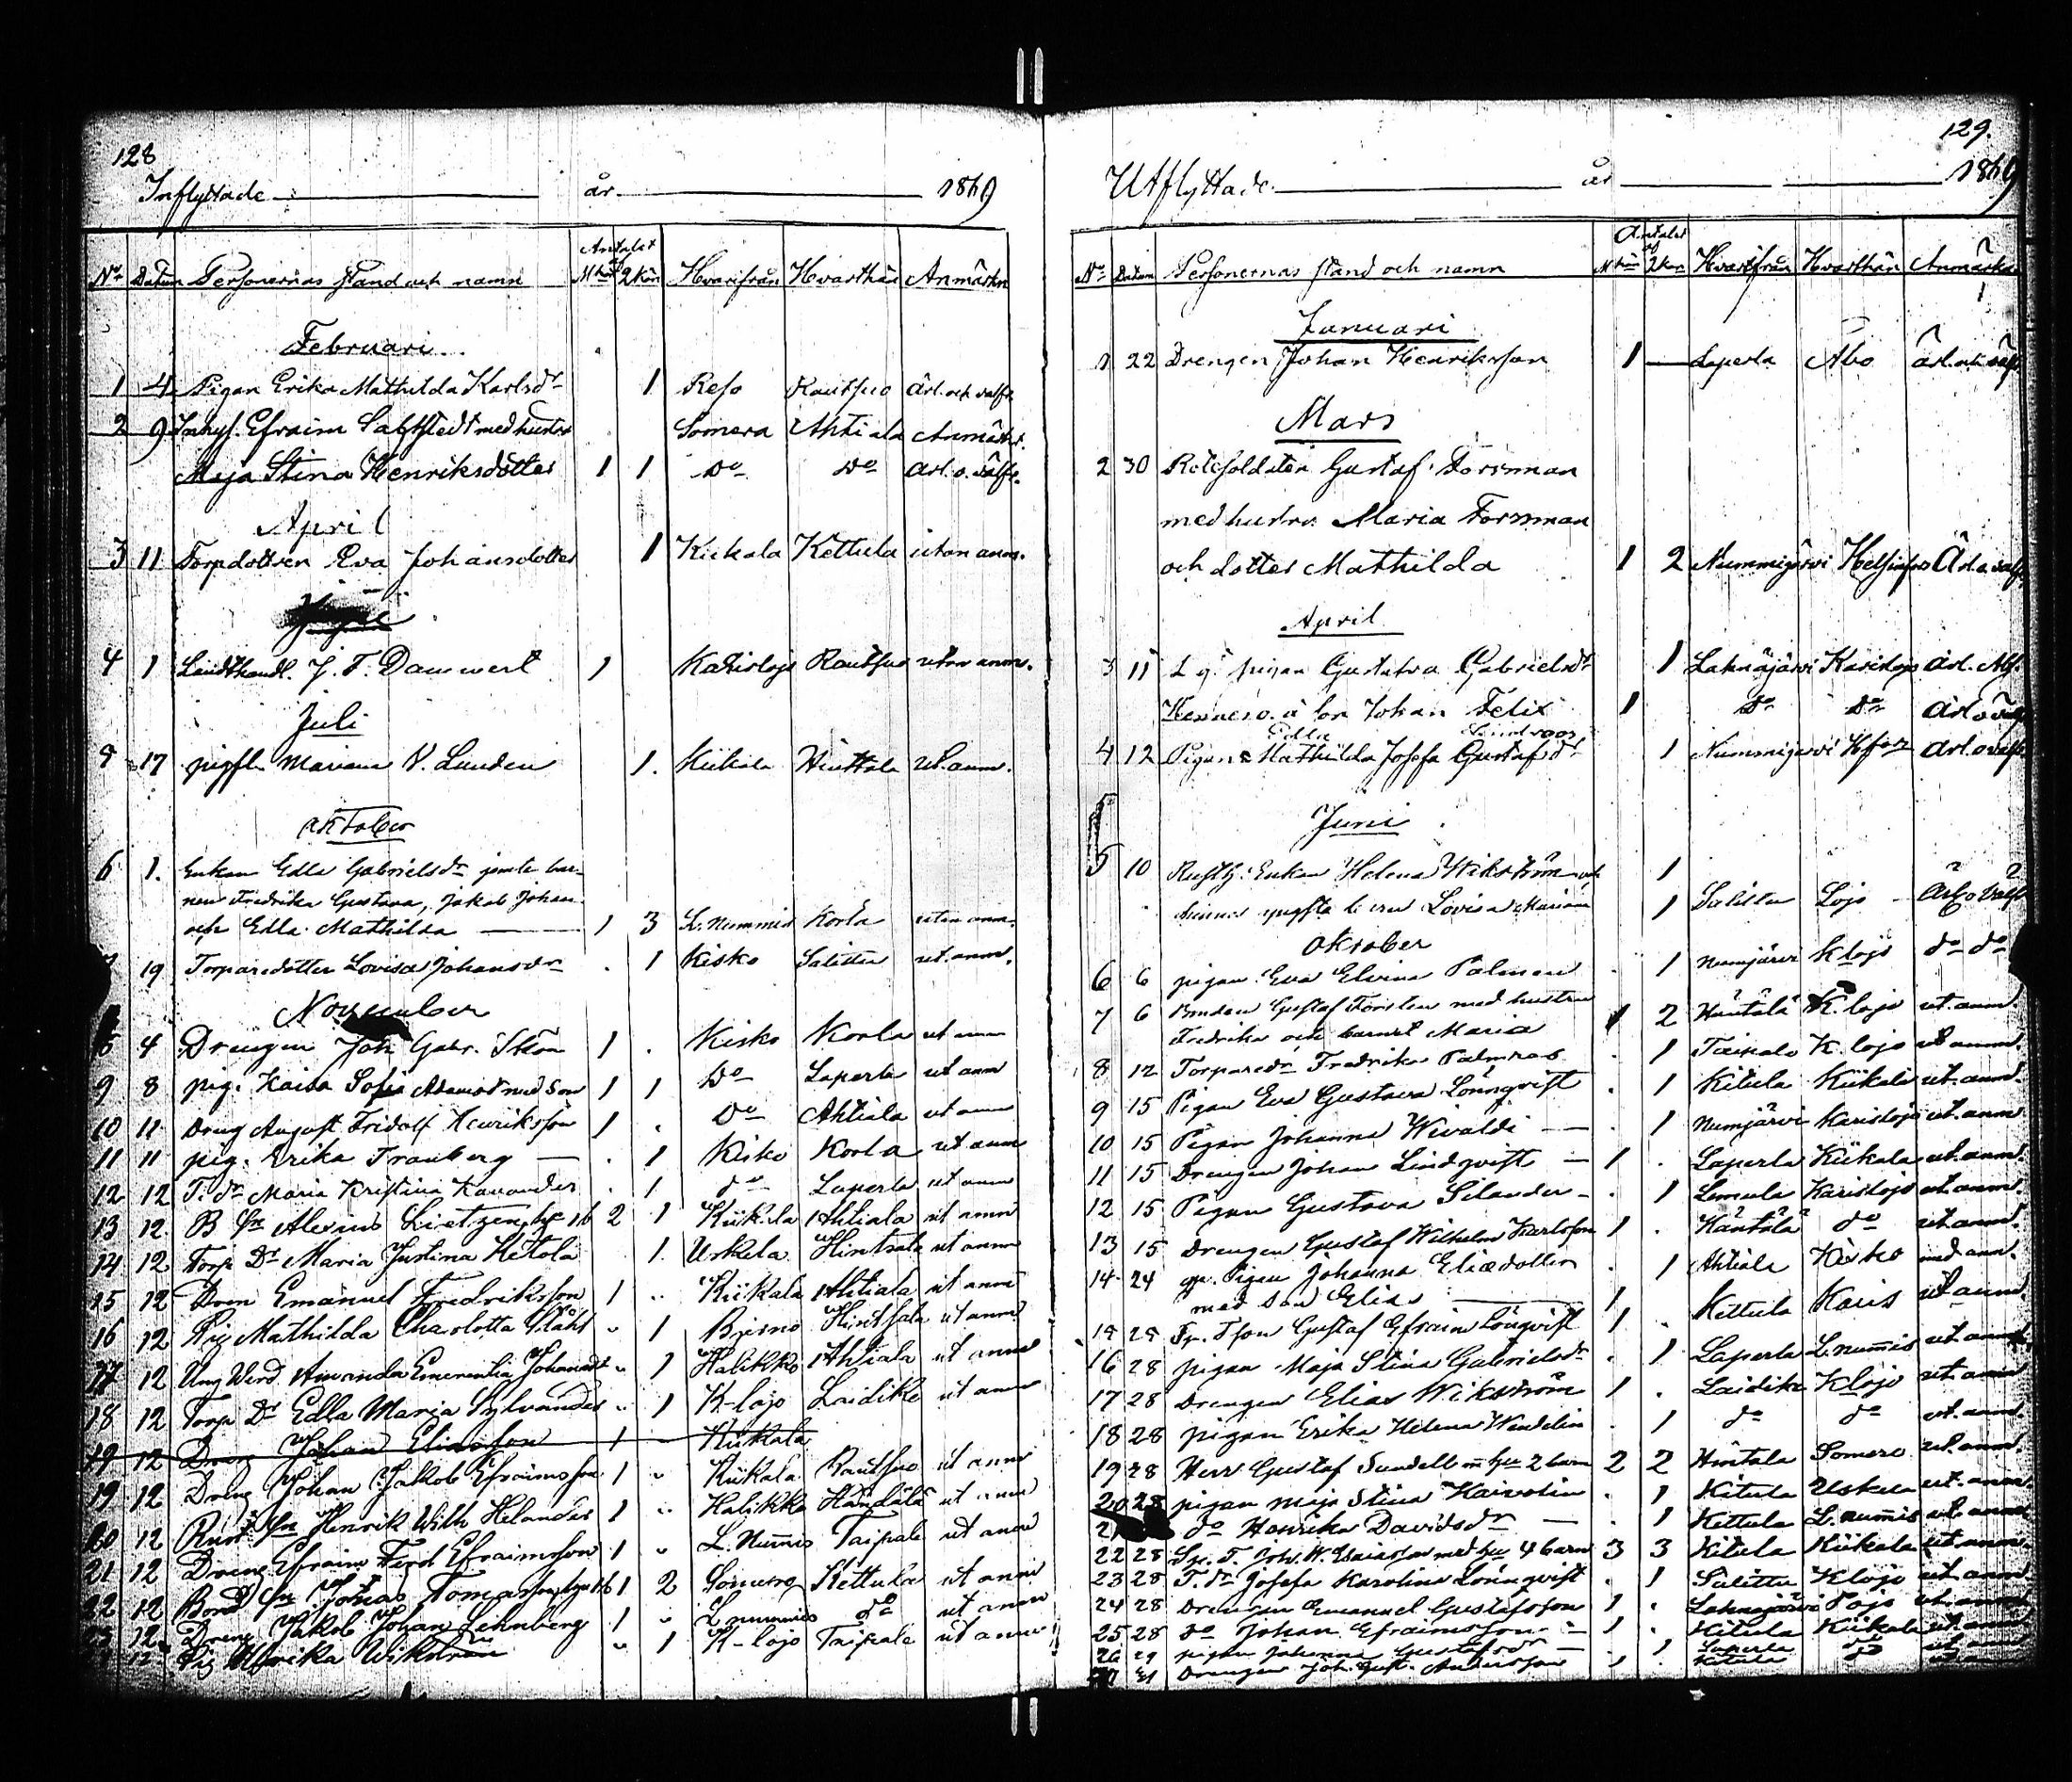 128
Inflyttade år 1869
No Datum Personernas stånd och namn Antalet af Mkön 2kön Hvarifrån Hvarthän Anmärkn
Februari
1 4 Pigan Erika Mathilda Karlsdr 1 Reso Rautsuo ärl. och välfr.
2 9 Inhys. Efraim med hustru Somero Ahtiala
Maja Stina Henriksdotter 1 1 Do Do ärl. o. välfr.
April
3 11 Torpdottren Eva Johansdotter 1 Kiikala Kettula utan anm.
4 1 Landthandl. J. F. Danwert 1 Karislojo Rautsuo utan anm.
Juli
5 17 pigfl. Mariana V. Lunden 1. Kiikala Hintsala ut. anm.
oktober
6 1. Enkan Edla Gabrielsdr jemte bar-
nen Fredrika Gustava, Jakob Johan
och Edla Mathilda 1 3 L. Nummis Korla utan anm.
19 Torparedotter Lovisa Johansdr . 1 Kisko Salittu ut. anm.
November
4 Drengen Joh Gabr. Skön 1 . Kisko Korla ut anm
9 8 pig. Kaisa Sofia Adamsd med son 1 1 Do Laperla ut anm
10 11 Dreng August Fridolf Henriksson 1 . Do Ahtiala ut anm
11 11 pig. Erika Tranberg . 1 Kisko Korla ut anm
12 12 T. dr Maria Kristina Kavander . 1 do Laperla ut anm
13 12. B Sn Alexius hu 1b 2 1 Kiikala Ahtiala ut anm
14 12 Torp Dr Maria Justina Ketola 1. Uskela Hintsala ut anm
15 12 Dren Emanuel Fredriksson 1 " Kiikala Ahtiala ut anm
16 12 Pig Mathilda Charlotta Ståhl " 1 Bjerno Hintsala ut anm
17 12 Ung Värd. Amanda Emerentia Johansdr " 1 Halikko Ahtiala ut anm
18 12 Torp Dr Edla Maria Sylvander " 1 K-lojo Laidike ut anm
19 12 Dreng Johan Eliasson 1 Kiikala
19 12 Dreng Johan Jakob Efraimsson 1 " Kiikala Rautsuo ut anm
20 12 Rust Sn Henrik Wilh Helander 1 " Halikko Händälä ut anm
21 12 Dreng Efraim Ferd Efraimsson 1 " L. Nummis Taipale ut anm
22 12 Bond Sn Johas Tomasson hu 1b 1 2 Somero Kettula ut anm
12 Dreng Jakob Johan Lehnberg 1 " L nummis do ut anm
12 Pig Ulrika Wikström " 1 K-lojo Taipale ut anm
129.
Utflyttade år 1869
No Datum Personernas stånd och namn Antalet af Mkön 2kön Hvarifrån Hvarthän Anmärkn
Januari
1 22 Drengen Johan Henriksson 1 — Laperla Åbo ärl. och välfr
Mars
2 30 Gustaf Forsman
med hustru Maria Forsman
och dotter Mathilda 1 2 Nummijärvi Helsinfors Ärl o välfr
April
3 11 L. q. pigan Gustava Gabrielsdr 1 Lahnajärvi Karislojo ärl.
Hennes o. ä. son Johan Felix 1 do do
Edla Lindroos
4 12 Pigan Mathilda Josefa Gustafsdr 1 Nummijärvi Hfors ärl. o välfr
5
Juni
5 10 Rusth. Enkan Helena Wikström och 1
hennes Lovisa Maria 1 Salittu Lojo
oktober
6 6 pigan Eva Elvina Palmen . 1 Numjärvi K lojo do do
7 6 Bonden Gustaf Forsten med hustru
Fredrika och barnet Maria 1 2 Häntälä K. lojo ut. anm.
8 12 Torparedr Fredrika Palmros . 1 Taipale K. lojo ut anm.
9 15 Pigan Eva Gustava Lönnqvist . 1 Kitula Kiikala ut. anm.
10 15 Pigan Johanna Wivaldi . 1 Numjärvi Karislojo ut. anm
11 15 Drengen Johan Lindqvist 1 . Laperla Kiikala ut. anm.
12 15 Pigan Gustava Silander . 1 Lemula Karislojo ut. anm.
13 15 Drengen Gustaf Wilhelm Karlsson 1 . Häntälä do ut. anm.
14 24 qv. Pigan Johanna Eliædotter . 1 Ahtiala Kisko med anm.
med son Elias 1
15 28 Tp. Tson Gustaf Efraim Lönqvist 1 . Kettula Karis ut anm
16 28 pigan Maja Stina Gabrielsdr . 1 Laperla L. nummis ut. anm.
17 28 Drengen Elias Wikström 1 . Laidike K lojo ut. anm
18 28 pigan Erika Helena Wendelin . 1 do do ut. anm.
19 28 Herr Gustaf Sundell m hu 2 barn 2 2 Hintala Somero ut. anm.
20 28 pigan Maja Stina Kaivolin . 1 Kitula Uskela ut. anm
21 do Henrika Davidsdr . 1 Kettula L. nummis ut. anm
22 28 Joh. W. med hu 4 barn 3 3 Kitula Kiikala ut. anm.
23 28 T. dr Josefa Karolina Lönnqvist . 1 Salittu K lojo ut. anm.
24 28 Drengen Emanuel Gustafsson 1 . Lahnajärvi Pojo ut. anm
25 28 do Johan Efraimsson 1 . Kitula Kiikala ut anm
26 29 pigan Johanna Gustafsdr . 1 Laperla do ut
31 Drengen Joh. Gust. Andersson 1 . Kitula